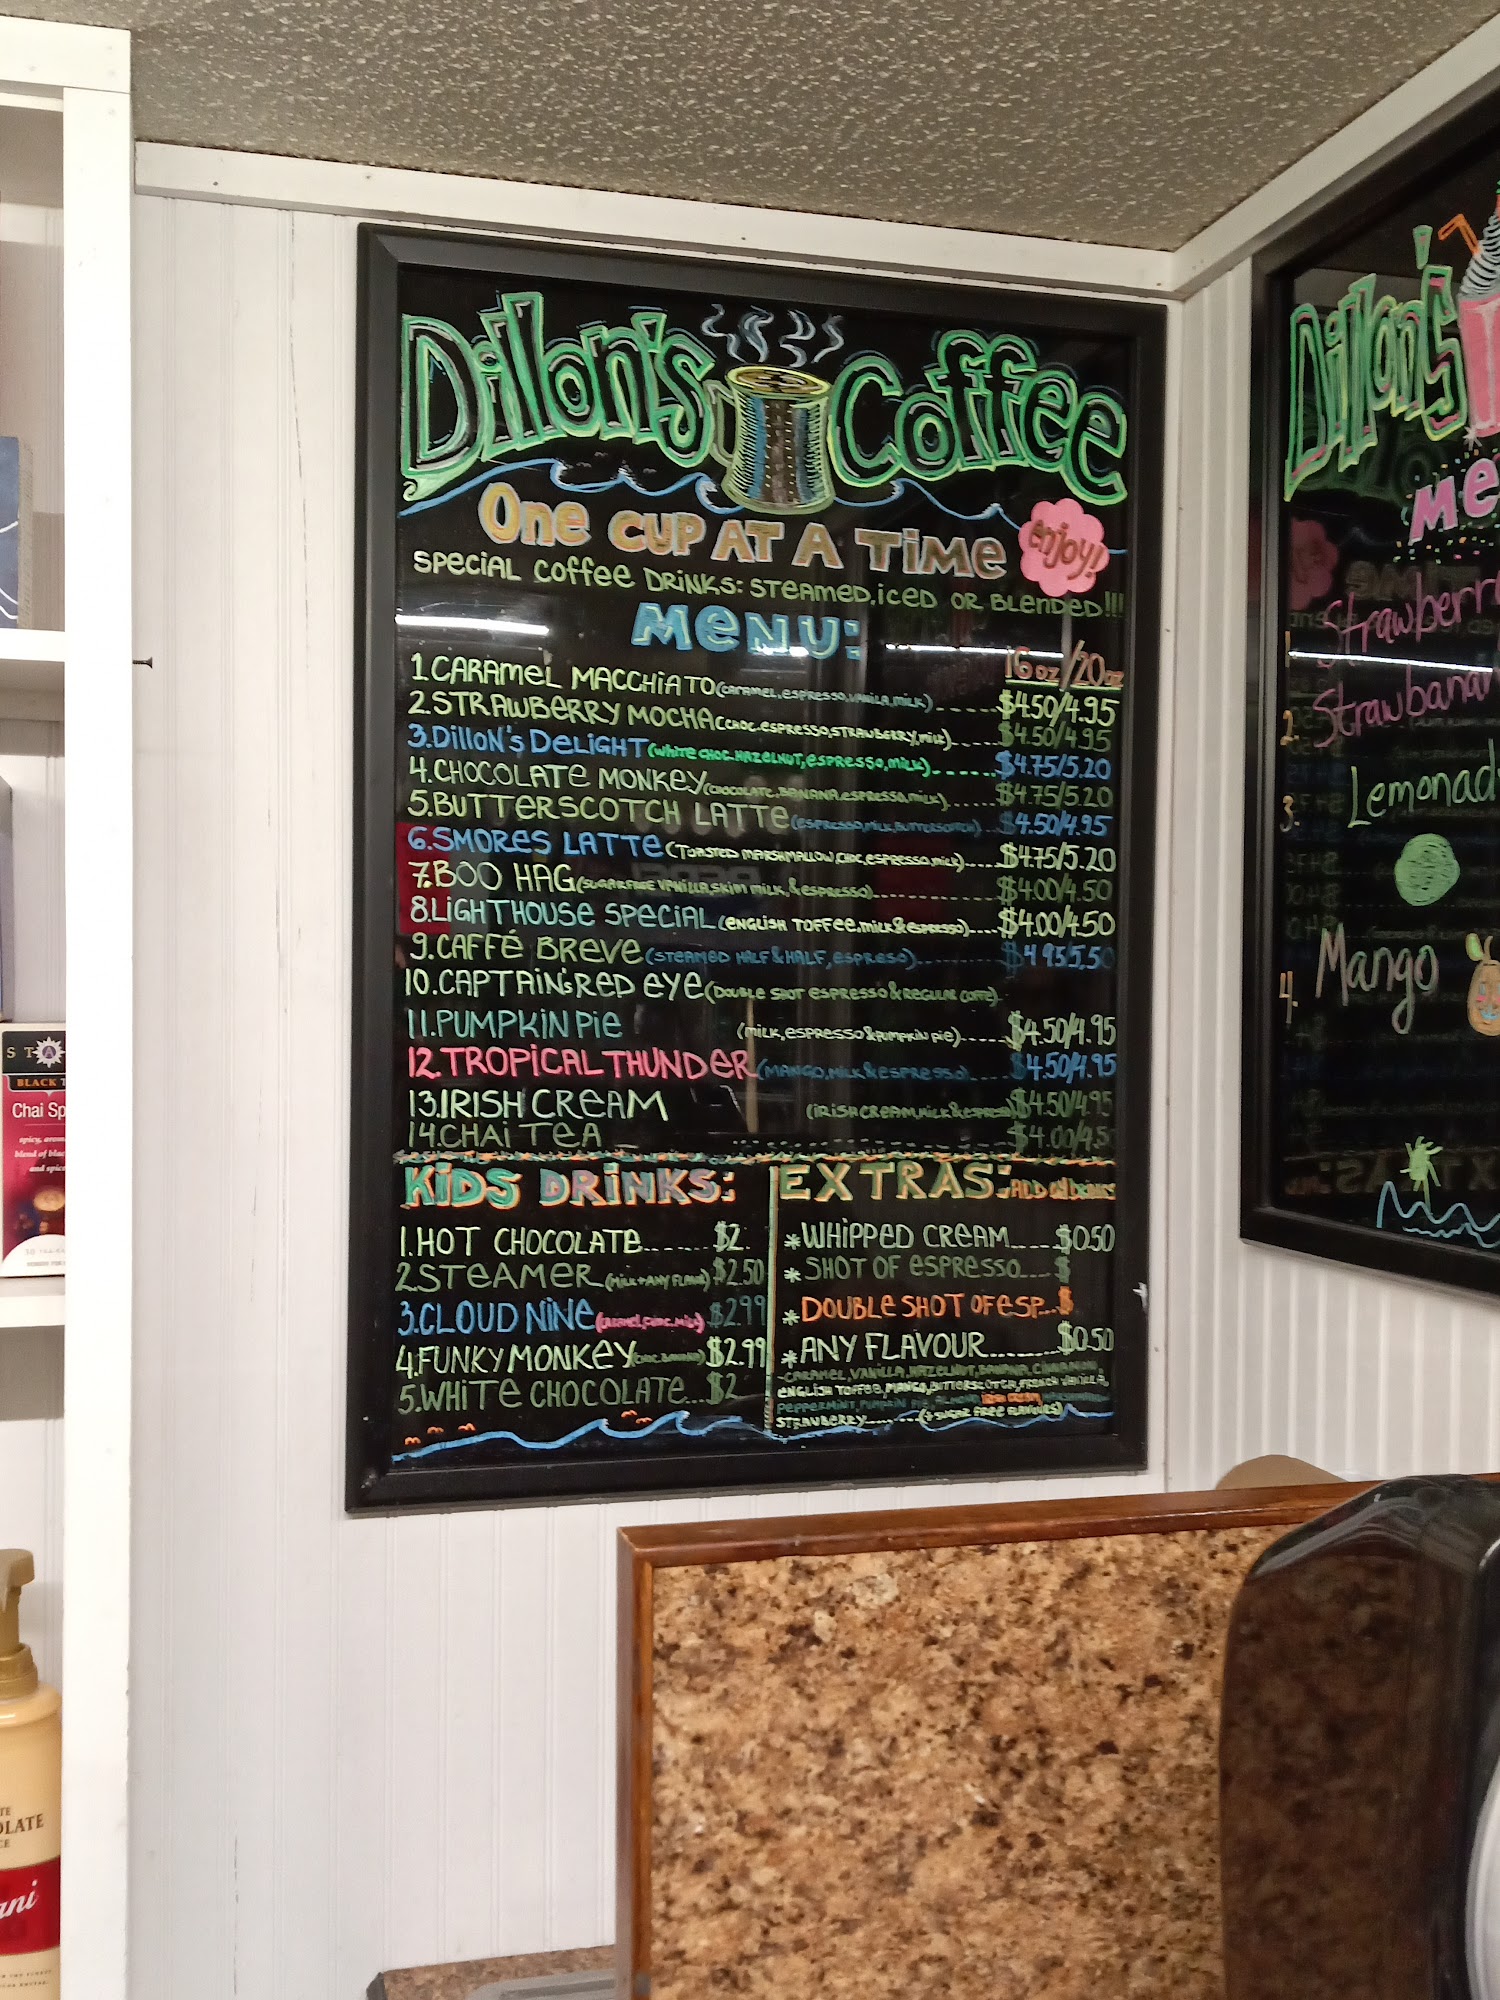 Dillon's Coffee
One CUP AT A TiMe
enjoy!
SPeCiAL Coffee DRiNKS: STEAMED, iCED OR BLENDED!!!
MeNU:
16 oz/20oz
1.CARAMeL MACCHiATO (CARAMEL, ESPRESSO, VANILA, MILK) $4.50/4.95
2.STRAWBERRY MOCHA (CHOC. ESPRESSO, STRAWBERRY, MILK) $4.50/4.95
3.DilloN's DeLiGHT (WHITE CHOC. HAZELNUT, ESPRESSO, MILK) $4.75/5.20
4.CHOCOLATe MONKEY (CHOCOLATE, BANANA, ESPRESSO, MILK) $4.75/5.20
5.BUTTERSCOTCH LATTe (ESPRESSO, MILK, BUTTERSCOTCH) $4.50/4.95
6.SMORES LATTe (TOASTED MARSHMALLOW, CHOC, ESPRESSO, MILK) $4.75/5.20
7.BOO HAG (SUGARFREE VANILLA, SKIM MILK, & ESPRESSO) $4.00/4.50
8.LiGHTHOUSe SPeCiAL (ENGLISH TOFFEE, MILK & ESPRESSO) $4.00/4.50
9.CAFFÉ BREVe (STEAMED HALF & HALF, ESPRESO) $4.95/5.50
10.CAPTAiN'S RED EYe (DOUBLE SHOT ESPRESSO & REGULAR COFFE)
11.PUMPKiN Pie (MILK, ESPRESSO & PUMPKIN PIE) $4.50/4.95
12.TROPiCAL THUNDeR (MANGO, MILK & ESPRESSO) $4.50/4.95
13.IRISH CREAM (IRISH CREAM, MILK & ESPRESSO) $4.50/4.95
14.CHAi TEA $4.00/4.5
KiDS DRiNKS:
1.HOT CHOCOLATE $2
2.STeAMER (MILK + ANY FLAVOR) $2.50
3.CLOUD NiNe (CARAMEL, CHOC, MILK) $2.99
4.FUNKY MONKEY (CHOC, BANANA) $2.99
5.WHiTe CHOCOLATE $2
EXTRAS: ADD ON DRINKS
*WHiPPED CREAM $0.50
*SHOT OF eSPRESSO $
*DOUBLE SHOT OF ESP... $
*ANY FLAVOUR $0.50
-CARAMEL, VANILLA, HAZELNUT, BANANA, CINNAMON,
ENGLISH TOFFEE, MANGO, BUTTERSCOTCH, FRENCH VANILLA,
PEPPERMINT, PUMPKIN PIE, ALMOND, IRISH CREAM
STRAWBERRY (+ SUGAR FREE FLAVOURS)
Dillon's
Me
Strawberr
2. Strawbanan
3. Lemonad
4. Mango
STA
BLACK T
Chai Sp
spicy, arom
blend of blac
and spice
OLATE
ani